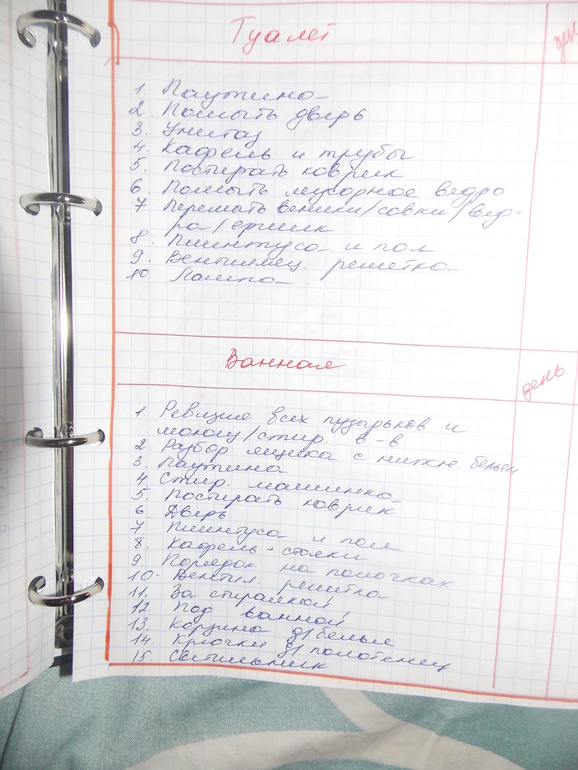 Туалет
день
1. Паутина
2. Помыть дверь
3. Унитаз
4. Кафель и трубы
5. Постирать коврик
6. Помыть мусорное ведро
7 Перемыть веники/совки/вед-
ра/ершик
8. Плинтуса и пол
9. Вентиляц. решетка
10 Лампа
Ванная
день
1 Ревизия всех пузырьков и
моющ/стир. в-в
2. Разбор ящика с нижн. бельем
3. Паутина
4. Стир. машинка
5. Постирать коврик
6 Дверь
7. Плинтуса и пол
8. Кафель + стояки
9. Порядок на полочках
10. Вентил. решетка
11. За стиралкой
12 Под ванной
13. Корзина д/белья
14 Крючки д/полотенец
15 Светильник